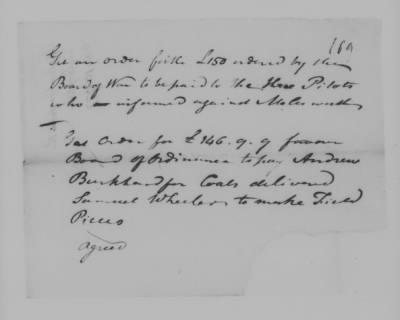 169
Get an order for the £150 ordered by the
Board of War to be paid to the three Pilots
who informed against Molesworth
Get Order for £146.9.9 from
Board of Ordinance to pay Andrew
Burkhard for Coals delivered
Samuel Wheeler to make Field
Pieces
agreed